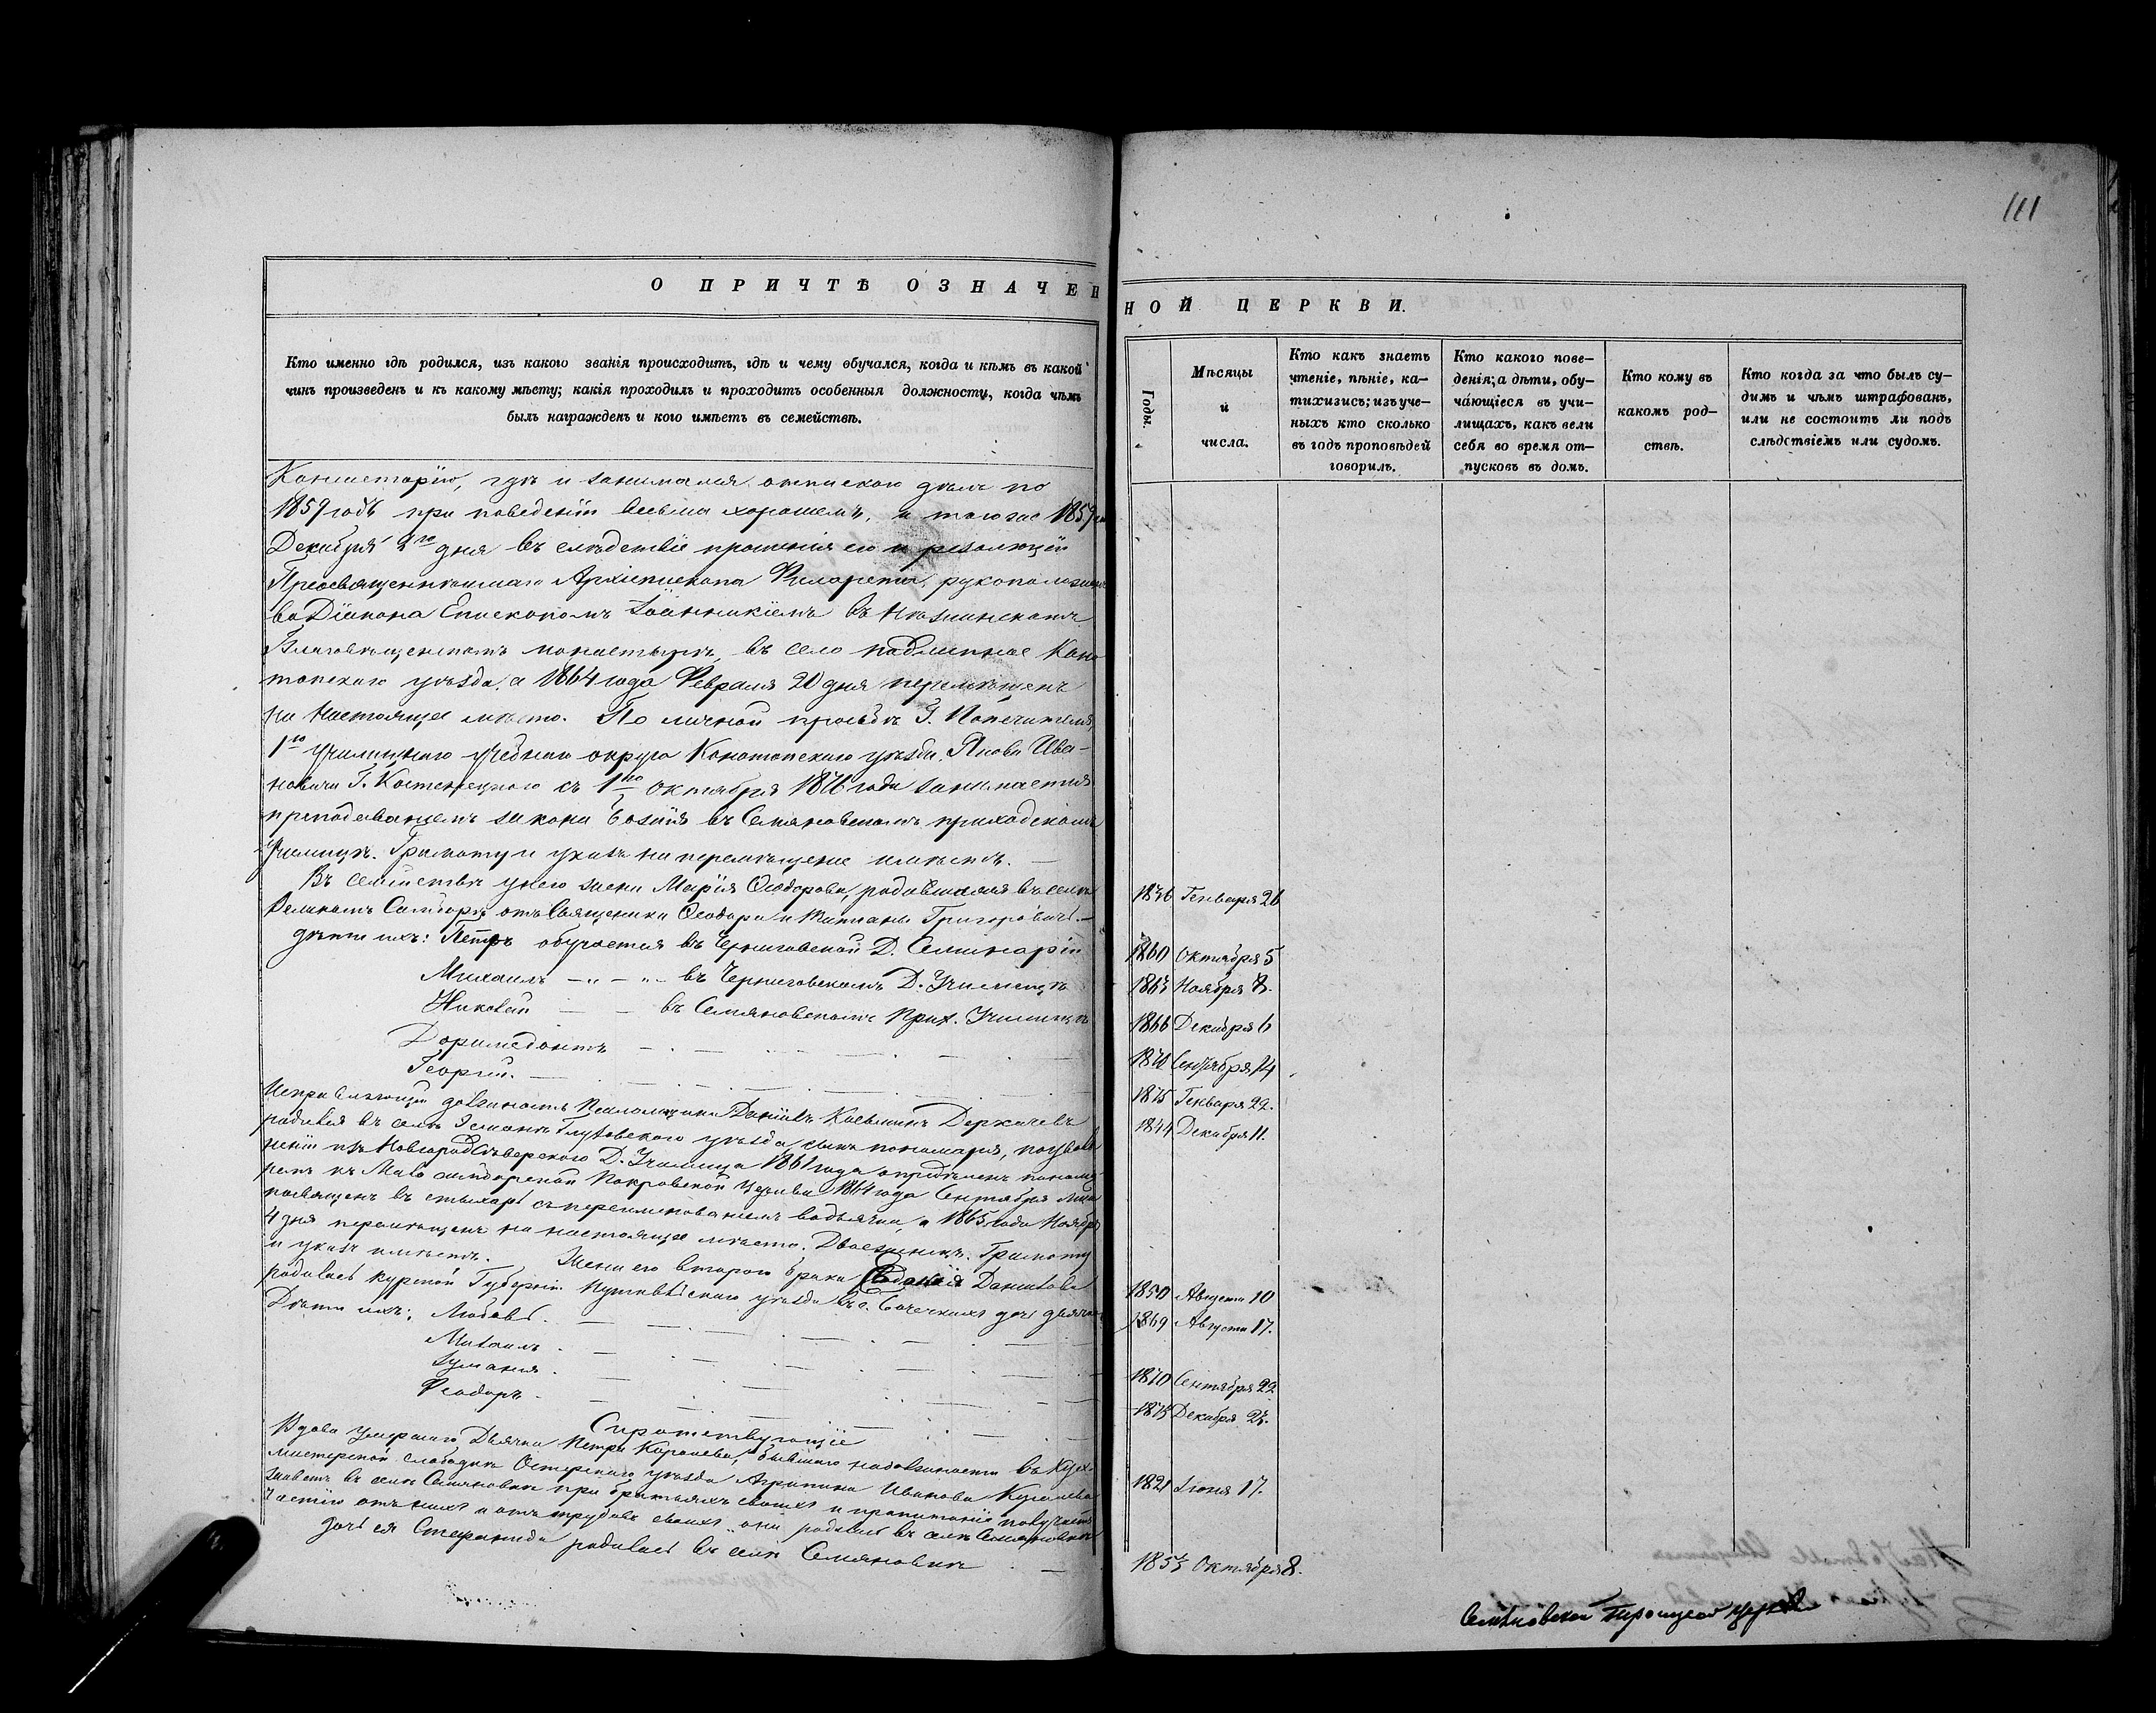 111
О ПРИЧТѢ ОЗНАЧЕННОЙ ЦЕРКВИ.
Кто именно гдѣ родился, изъ какого званія происходитъ, гдѣ и чему обучался, когда и кѣмъ въ какой
чинъ произведенъ и къ какому мѣсту; какія проходилъ и проходитъ особенныя должности, когда чѣмъ
былъ награжденъ и кого имѣетъ въ семействѣ.
Годы.
Мѣсяцы
и
числа.
Кто какъ знаетъ
чтеніе, пѣніе, ка-
тихизисъ; изъ уче-
ныхъ кто сколько
въ годъ проповѣдей
говорилъ.
Кто какого пове-
денія; а дѣти, обу-
чающіеся въ учи-
лищахъ, какъ вели
себя во время от-
пусковъ въ домъ.
Кто кому въ
какомъ род-
ствѣ.
Кто когда за что былъ су-
димъ и чѣмъ штрафованъ,
или не состоитъ ли подъ
слѣдствіемъ или судомъ.
Консисторію, гдѣ и занимался отпискою дѣлъ по
1859 годъ при поведеніи весьма хорошемъ, а того же 1859
Декабря дня въ слѣдствіе прошенія его и резолюціи
Преосвященнѣйшаго Архіепископа Филарета, рукоположенъ
во Діакона Епископомъ Іоанникіемъ въ Нѣжинскомъ
Благовѣщенскомъ монастырѣ, въ село подлипное Коно
топскаго уѣзда, а 1864 года Февраля 20 дня перемѣщенъ
на настоящее мѣсто. По личной просьбѣ Г. Попечителя
1го училищнаго учебнаго округа Конотопскаго уѣзда, Якова Ива-
новича Г. Костенецкаго съ 1го октября 1876 года занимается
преподаваніемъ закона божія въ Семяновскомъ приходскомъ
училищѣ. Грамоту и указъ на перемѣщеніе имѣетъ. —
Въ семействѣ у него жена Марія Ѳеодорова, родившаяся въ селѣ
Великомъ Самборѣ отъ Священника Ѳеодора и Татіаны Григоровичъ. —
1846 Генваря 26
дѣти ихъ: Петръ обучается въ Черниговской Д. Семинаріи
1860 Октября 5
Михаилъ — " — " — въ Черниговскомъ Д. Училищѣ
1863 Ноября 8.
Николай — — въ Семяновскомъ Прих. Училищѣ
1866 Декабря 6
Доримедонтъ
1870 Сентября 14
Георгій.
1875 Генваря 22.
Исправляющій должность Псаломщика Даніилъ Косьминъ Деркачевъ
1844 Декабря 11.
родился въ селѣ Эсмани Глуховскаго уѣзда, сынъ пономаря, по уволь
неніи изъ Новгородсѣверскаго Д. Училища 1861 года опредѣленъ понома
ремъ къ Мало самборской Покровской церкви 1864 года Сентября
посвященъ въ стихарь съ переименованіемъ во дьячка, а 1865 года Ноября
4 дня перемѣщенъ на настоящее мѣсто. Двоеженецъ. Грамоту
и указъ имѣетъ. Жена его втораго брака Даніилова
1850 Августа 10
родилась Курской Губерніи Путивльскаго уѣзда въ с. Бочечкахъ дочь дьячка
Дѣти ихъ: Любовь.
1869 Августа 17.
Михаилъ.
Іуліанія.
1870 Сентября 22.
Феодоръ.
1875 Декабря 27.
Сиротствующіе
Вдова умершаго Дьячка Петра Королева, бывшаго на должности въ
слободкѣ Остерскаго уѣзда Агрипина Иванова
1821 Іюня 17.
живетъ въ селѣ Семяновкѣ при братьяхъ своихъ и пропитаніе получаетъ
частію отъ нихъ и отъ трудовъ своихъ, она родилась въ селѣ Семяновкѣ
дочь ея Стефанида родилась въ селѣ Семяновкѣ
1853 Октября 8.
Семяновской Троицкой церкви